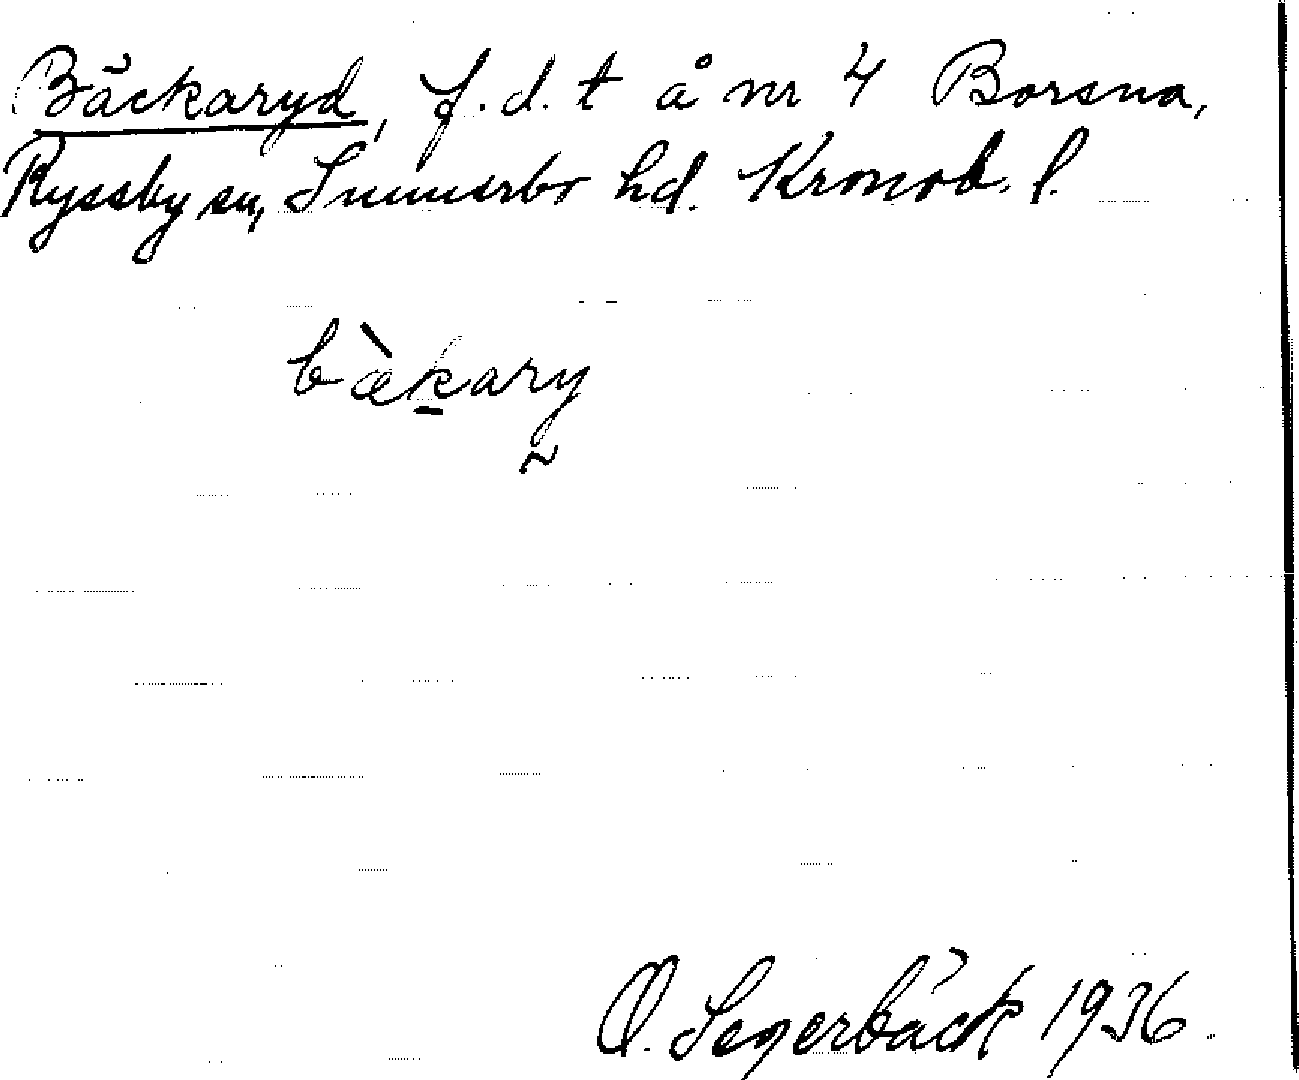 Bäckaryd, f.d. t å nr 4 Borsna,
Ryssby sn, Sunnerbo hd. Kronob. l.
bæ̀kary
O. Segerbäck 1936.